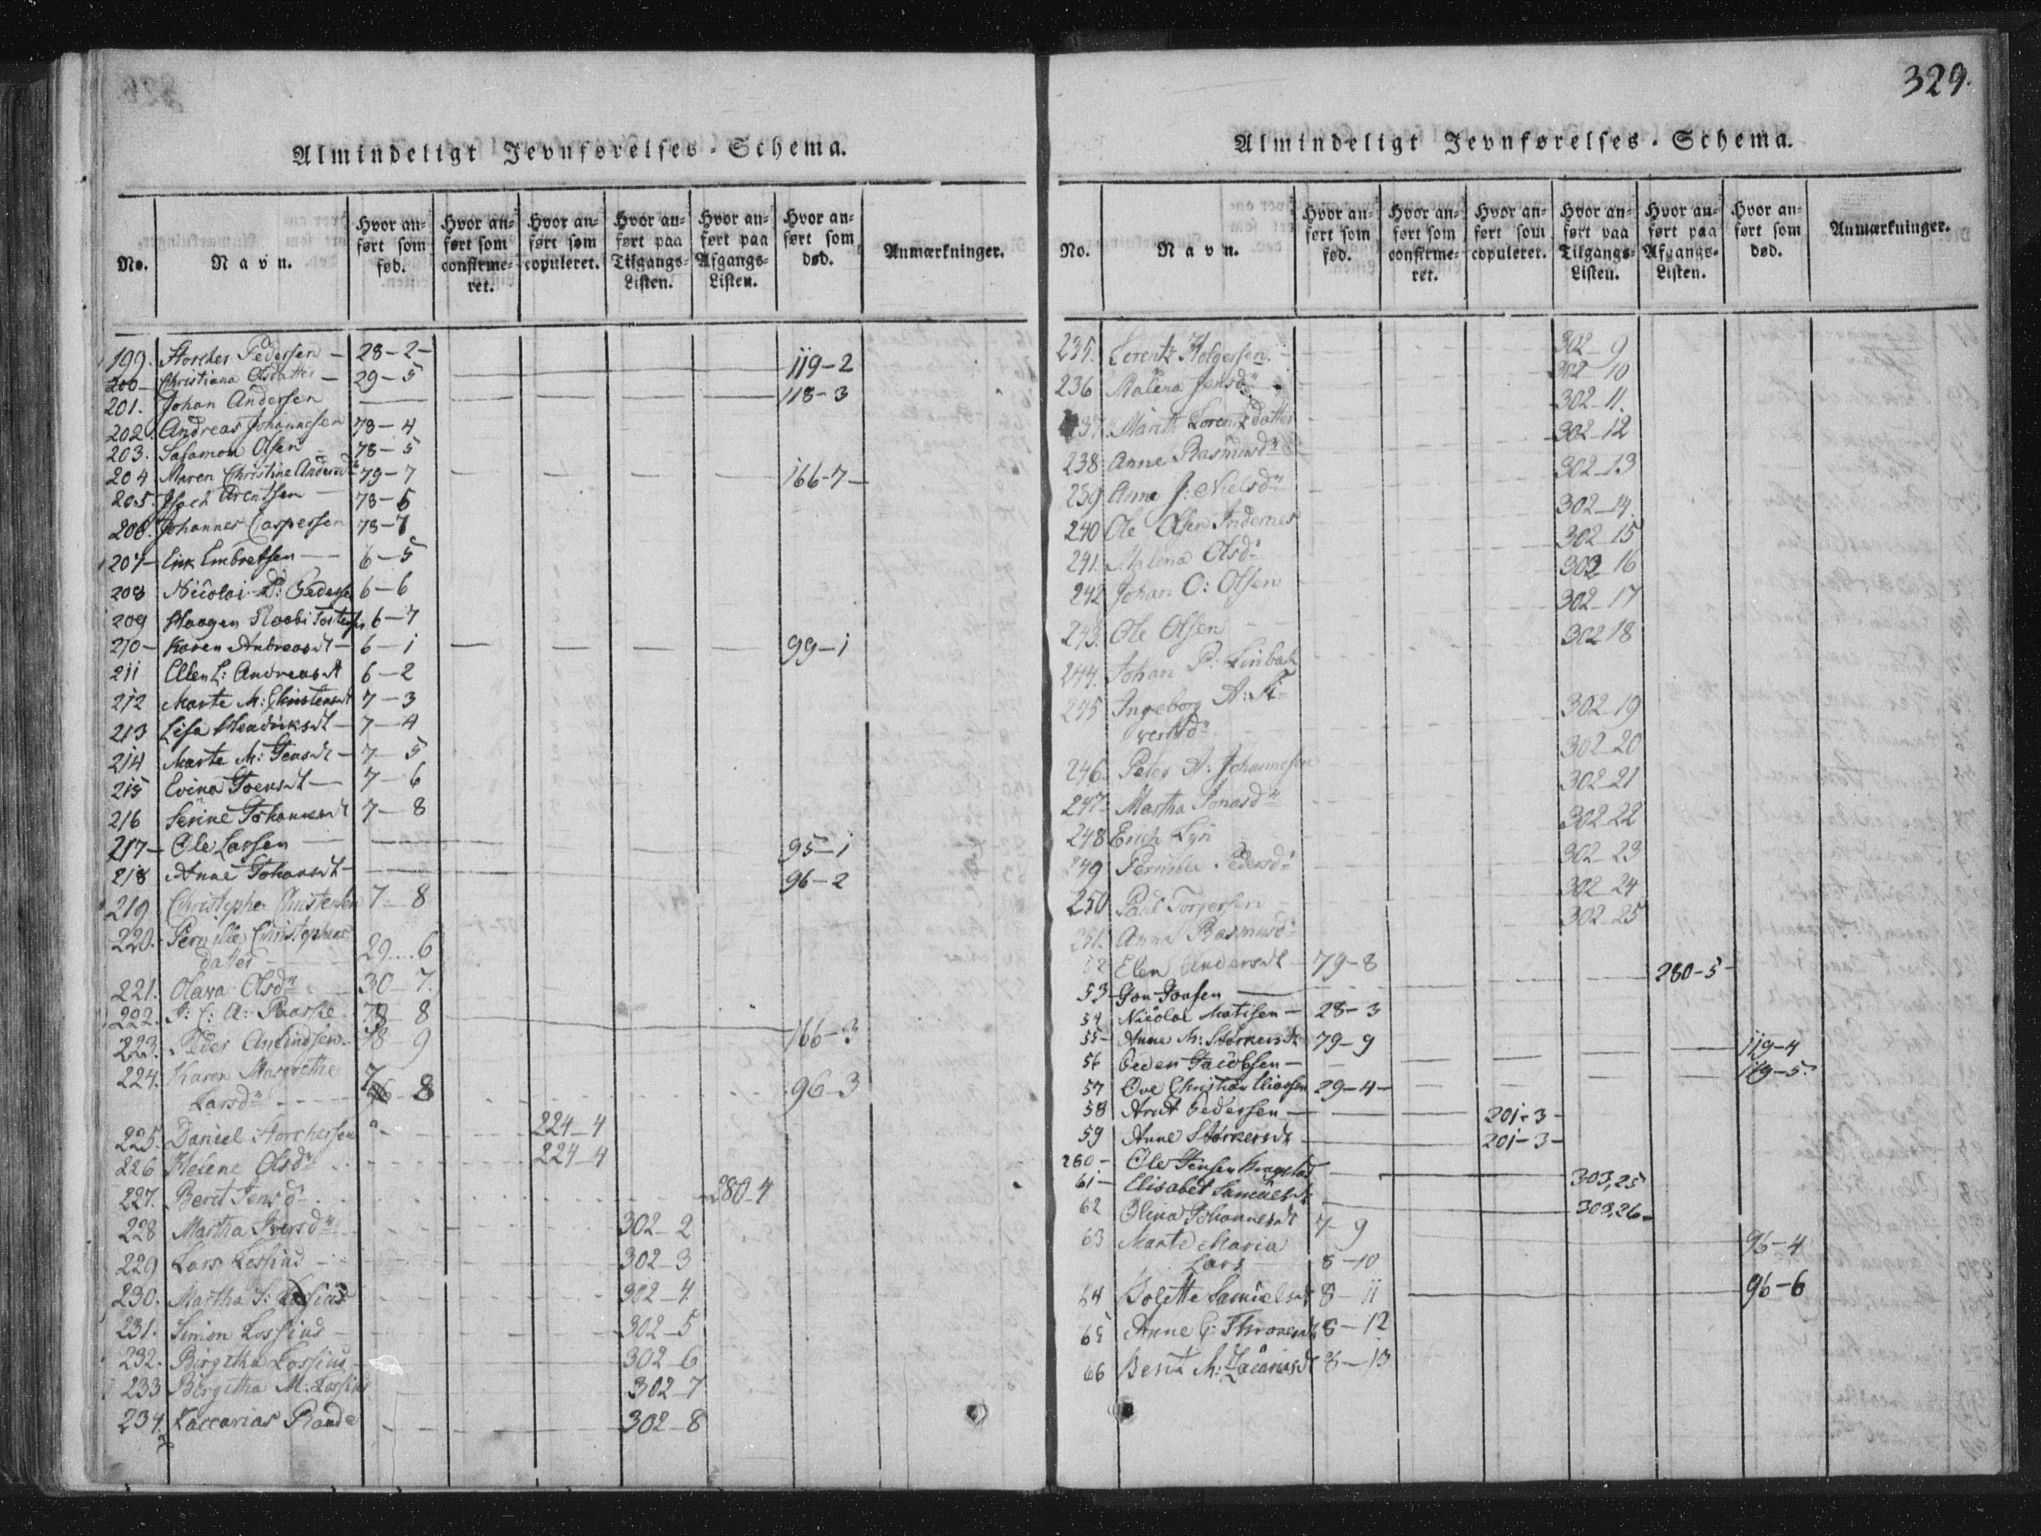 Almindeligt Jevnførelses-Schema.
No.
Navn.
Hvor anført som fød.
Hvor anført som confirmeret.
Hvor anført som copuleret.
Hvor anført paa Tilgangs-Listen.
Hvor anført paa Afgangs-Listen.
Hvor anført som død.
Anmærkninger.
199. Storcher Pedersen — 28-2-
200- Christiana Olsdatter — 29-5 119-2
201. Johan Andersen 118-3
202. Andreas Johannesen 78-4
203. Salamon Olsen 78-5
204 Maren Christine Andersd 79-7 166-7
205. Arentsen 78-6
206. Johannes Caspersen 78-7
207- Erik Embretsen 6-5
208 Nicolai P: Pedersen 6-6
209 Haagen 6-7
210- Karen Andreasdt- 6-1 99-1
211 Ellen L: Andreasdt 6-2
212 Marte M: Christensdt 7-3
213 Lisa Hendriksdt- 7-4
214 Marte M: Jensdt- 7-5
215 7-6
216 Serine Johannesdt 7-8
217- Ole Larsen 95-1
218 Anne Johansdt- 96-2
219 Christopher Christensen 7-8
220. Pernille Christophers
datter 29...6
221. Olava Olsdr 30-7.
222. J: C: A: Paaske 78-8
223. Peder Amundsen 78-9 166-3
224. Karen Margrethe
Larsdr 8 96-3
225. Daniel Storchersen 224-4
226 Helene Olsdr 224-4
227. Berit Jensd 280-4
228 Martha Iversdr 302-2
229 Lars Lossius 302-3
230. Martha S: Lossius 302-4
231. Simon Lossius 302-5
232. Birgitha Lossius 302-6
233 Birgitha M. Lossius 302-7
234. Zaccarias Raude 302-8
329.
Almindeligt Jevnførelses-Schema.
No.
Navn.
Hvor anført som fød.
Hvor anført som confirmeret.
Hvor anført som copuleret.
Hvor anført paa Tilgangs-Listen.
Hvor anført paa Afgangs-Listen.
Hvor anført som død.
Anmærkninger.
235. Lorentz Holgersen 302-9
236 Malena Jensdr 302-10
237. Marith Lorentzdatter 302-11.
238. Anne Rasmusdr 302-12
239 Anne J: Nielsdr 302-13
240 Ole Olsen Indernes 302-14.
241. Malena Olsd 302-15
242 Johan O: Olsen 302-16
243. Ole Olsen 302-17
244. Johan P: 302 18
245 Ingeborg A:
302-19
246 Peter A: Johannesen 302-20
247- Martha Jonasdr 302-21
248 Erich Lyn 302-22
249 Pernille Pedersd 302-23
250 Paul Torgersen 302-24
251. Anna Rasmusd 302-25
52 Elen Andersdt 79-8
53- Jon Jonsen 280-5-
54 Nicolai Matisen - 28-3
55- Anne M: Størkersdt 79-9
56 Peder Jacobsen - 119-4
57 Ove Christian 29-4- 119-5.
58 Arnt Pedersen 201-3-
59 Anne Størkersdt 201-3-
260- Ole Jensen 303,25
61- Elisabet Samuelsdt 303,26-
62 Olina Johannesdt 7-9
63 Marte Maria 96-4
Lars 8-10
64 Bolette Samuelsdt 8-11 96-6
65 Anne 8-12
66 Berit M: Zacariasdt 8-13